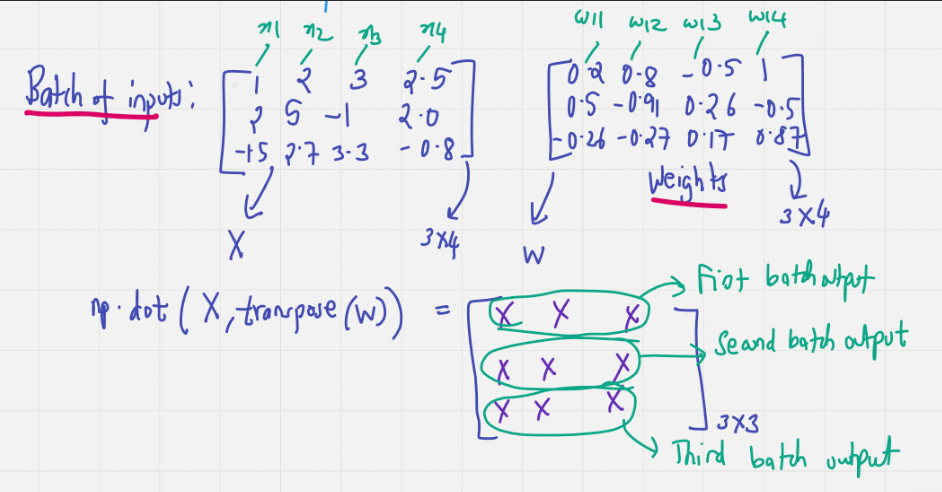 x1 x2 x3 x4
w11 w12 w13 w14
Batch of inputs:
1 2 3 2.5
2 5 -1 2.0
-1.5 2.7 3.3 -0.8
0.2 0.8 -0.5 1
0.5 -0.91 0.26 -0.5
-0.26 -0.27 0.17 0.87
Weights
X
3X4
W
3X4
np.dot(X, transpose(W)) =
X X X
X X X
X X X
3X3
First batch output
Second batch output
Third batch output